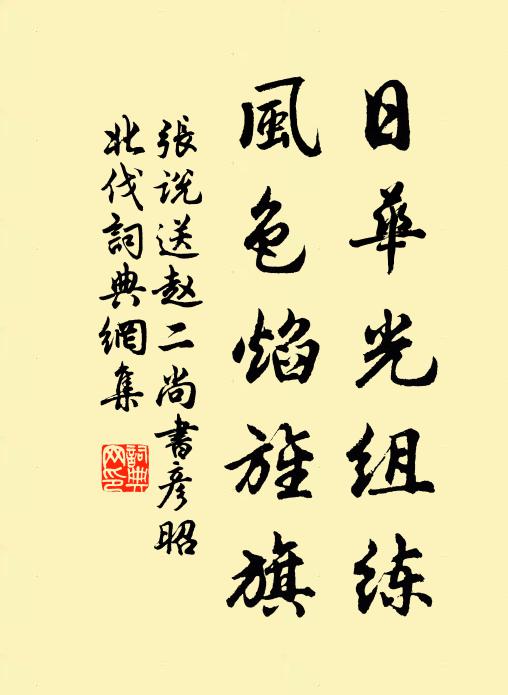 日華光組练
風色焰旌旗
張说送赵二尚書彦昭
北伐詞典網集
詞典
网印